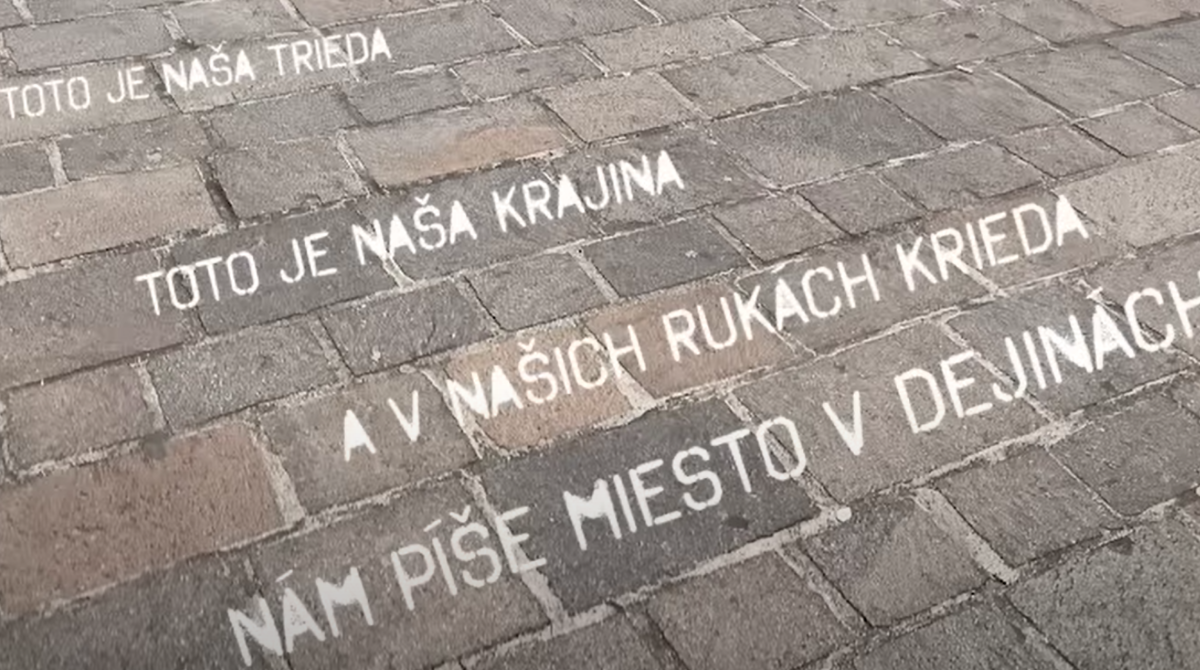 TOTO JE NAŠA TRIEDA
TOTO JE NAŠA KRAJINA
A V NAŠICH RUKÁCH KRIEDA
NÁM PÍŠE MIESTO V DEJINÁCH